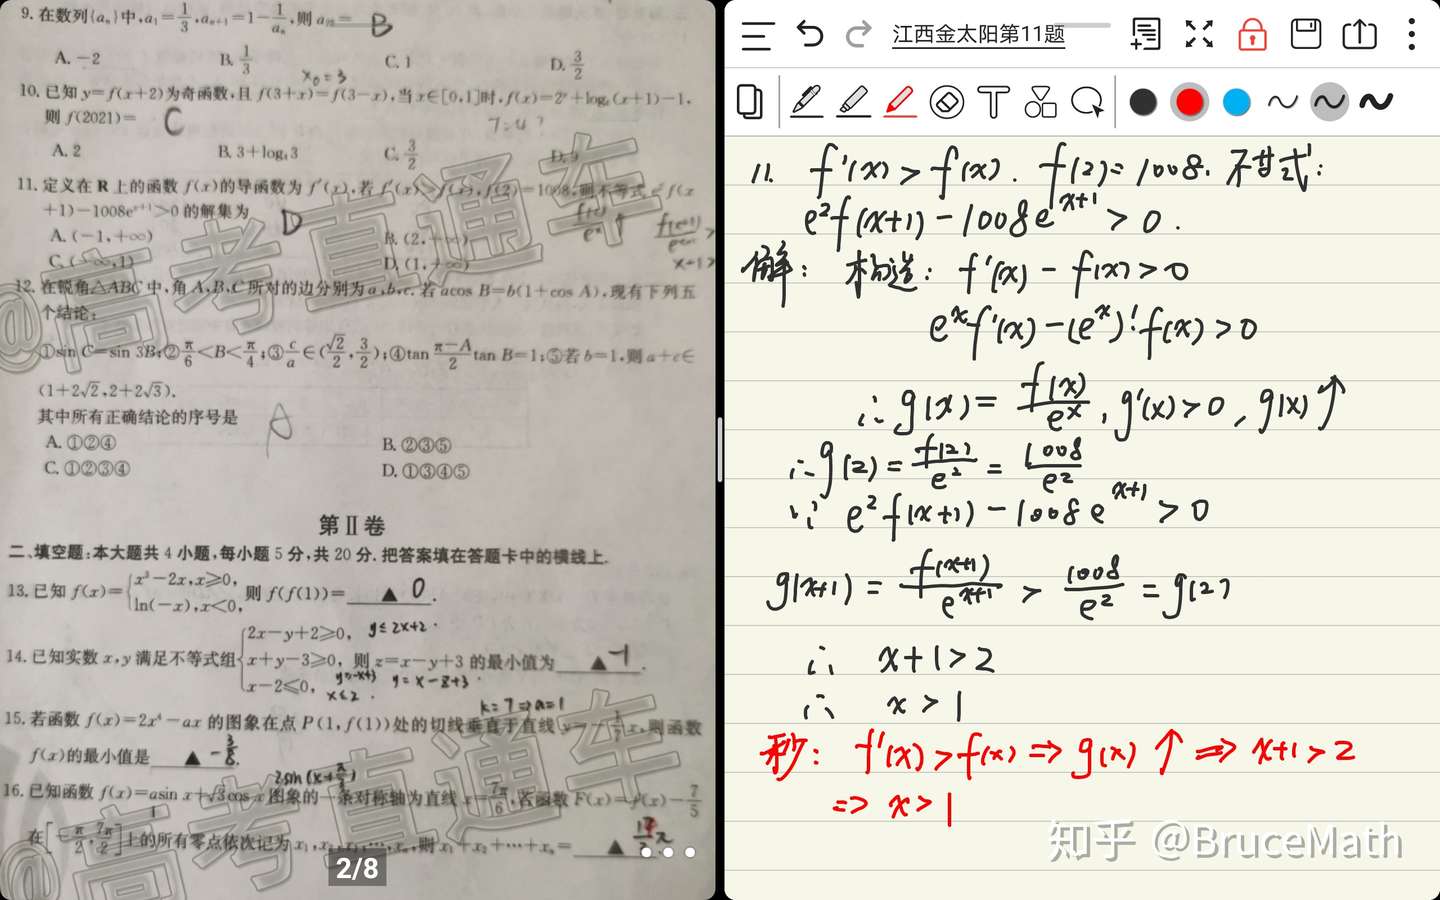 9. 在数列{aₙ}中,a₁=1/3,aₙ₊₁=1-1/aₙ,则 a = B
A. -2 B. 1/3 C. 1 D. 3/2
x₀=3
10. 已知 y=f(x+2)为奇函数,且 f(3+x)=f(3-x),当 x∈[0,1]时,f(x)=2ˣ+log₄(x+1)-1,
则 f(2021)= C
T=4
A. 2 B. 3+log₄3 C. 3/2 D.
11. 定义在 R 上的函数 f(x)的导函数为 f′(x),若 f′(x)>f(x),f(2)=1008,则不等式 e²f(x
+1)-1008eˣ⁺¹>0 的解集为 D
A. (-1,+∞) B. (2,+∞)
C. (-∞,1) D. (1,+∞)
f(x)/eˣ ↑
x+1>
12. 在锐角△ABC 中,角 A,B,C 所对的边分别为 a,b,c. 若 acos B=b(1+cos A),现有下列五
个结论:
①sin C=sin 3B;②π/6<B<π/4;③c/a∈(√2/2,3/2);④tan (π-A)/2 tan B=1;⑤若 b=1,则 a+c∈
(1+2√2,2+2√3).
其中所有正确结论的序号是
A
A. ①②④ B. ②③⑤
C. ①②③④ D. ①③④⑤
第Ⅱ卷
二、填空题:本大题共 4 小题,每小题 5 分,共 20 分. 把答案填在答题卡中的横线上.
13. 已知 f(x)={x³-2x,x≥0, ln(-x),x<0, 则 f(f(1))= ▲ 0 .
14. 已知实数 x,y 满足不等式组{2x-y+2≥0, x+y-3≥0, x-2≤0, 则 z=x-y+3 的最小值为 ▲ -1 .
y≤2x+2.
y≥-x+3
x≤2.
y=x-z+3.
k=7⇒a=1
15. 若函数 f(x)=2x⁴-ax 的图象在点 P(1,f(1))处的切线垂直于直线 y=-1/7x,则函数
f(x)的最小值是 ▲ -3/8.
2sin(x+π/3)
16. 已知函数 f(x)=asin x+√3cos x 图象的一条对称轴为直线 x=7π/6,若函数 F(x)=f(x)-7/5
1
在[-π/2,7π/2]上的所有零点依次记为 x₁,x₂,x₃,…,xₙ,则 x₁+x₂+…+xₙ= ▲
@高考直通车
@高考直通车
2/8
江西金太阳第11题
11. f′(x)>f(x). f(2)=1008. 不等式:
e²f(x+1)-1008eˣ⁺¹>0.
解: 构造: f′(x)-f(x)>0
eˣf′(x)-(eˣ)′f(x)>0
∴g(x)=f(x)/eˣ, g′(x)>0, g(x)↑
∴g(2)=f(2)/e²=1008/e²
∵ e²f(x+1)-1008eˣ⁺¹>0
g(x+1)=f(x+1)/eˣ⁺¹>1008/e²=g(2)
∴ x+1>2
∴ x>1
秒: f′(x)>f(x)⇒g(x)↑⇒x+1>2
⇒x>1
知乎 @BruceMath